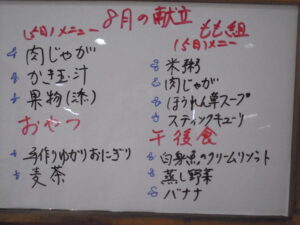 8月の献立
(5日)メニュー
肉じゃが
かき玉汁
果物(添)
おやつ
手作りゆかりおにぎり
麦茶
もも組
(5日)メニュー
米粥
肉じゃが
ほうれん草スープ
スティックキューリ
午後食
白身魚のクリームリゾット
蒸し野菜
バナナ